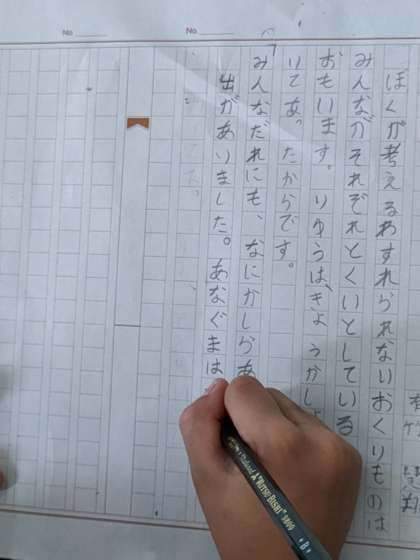 ぼくが考えるわすれられないおくりものは
みんながそれぞれとくいとしている
おもいます。りゆうは、きょうかし
いてあったからです。
みんなだれにも、なにかしらあ
出がありました。あなぐまは
No.
No.
MITSU-BISHI 9800
B